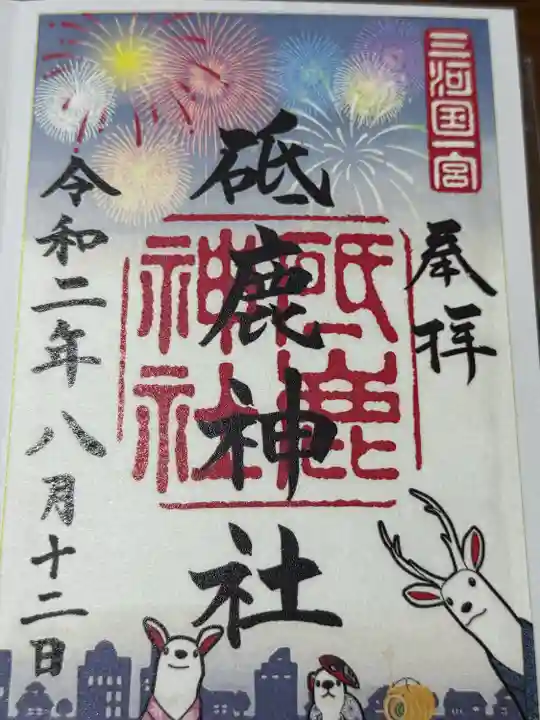 三河国一宮
奉拝
砥鹿神社
砥鹿
神社
令和二年八月十二日